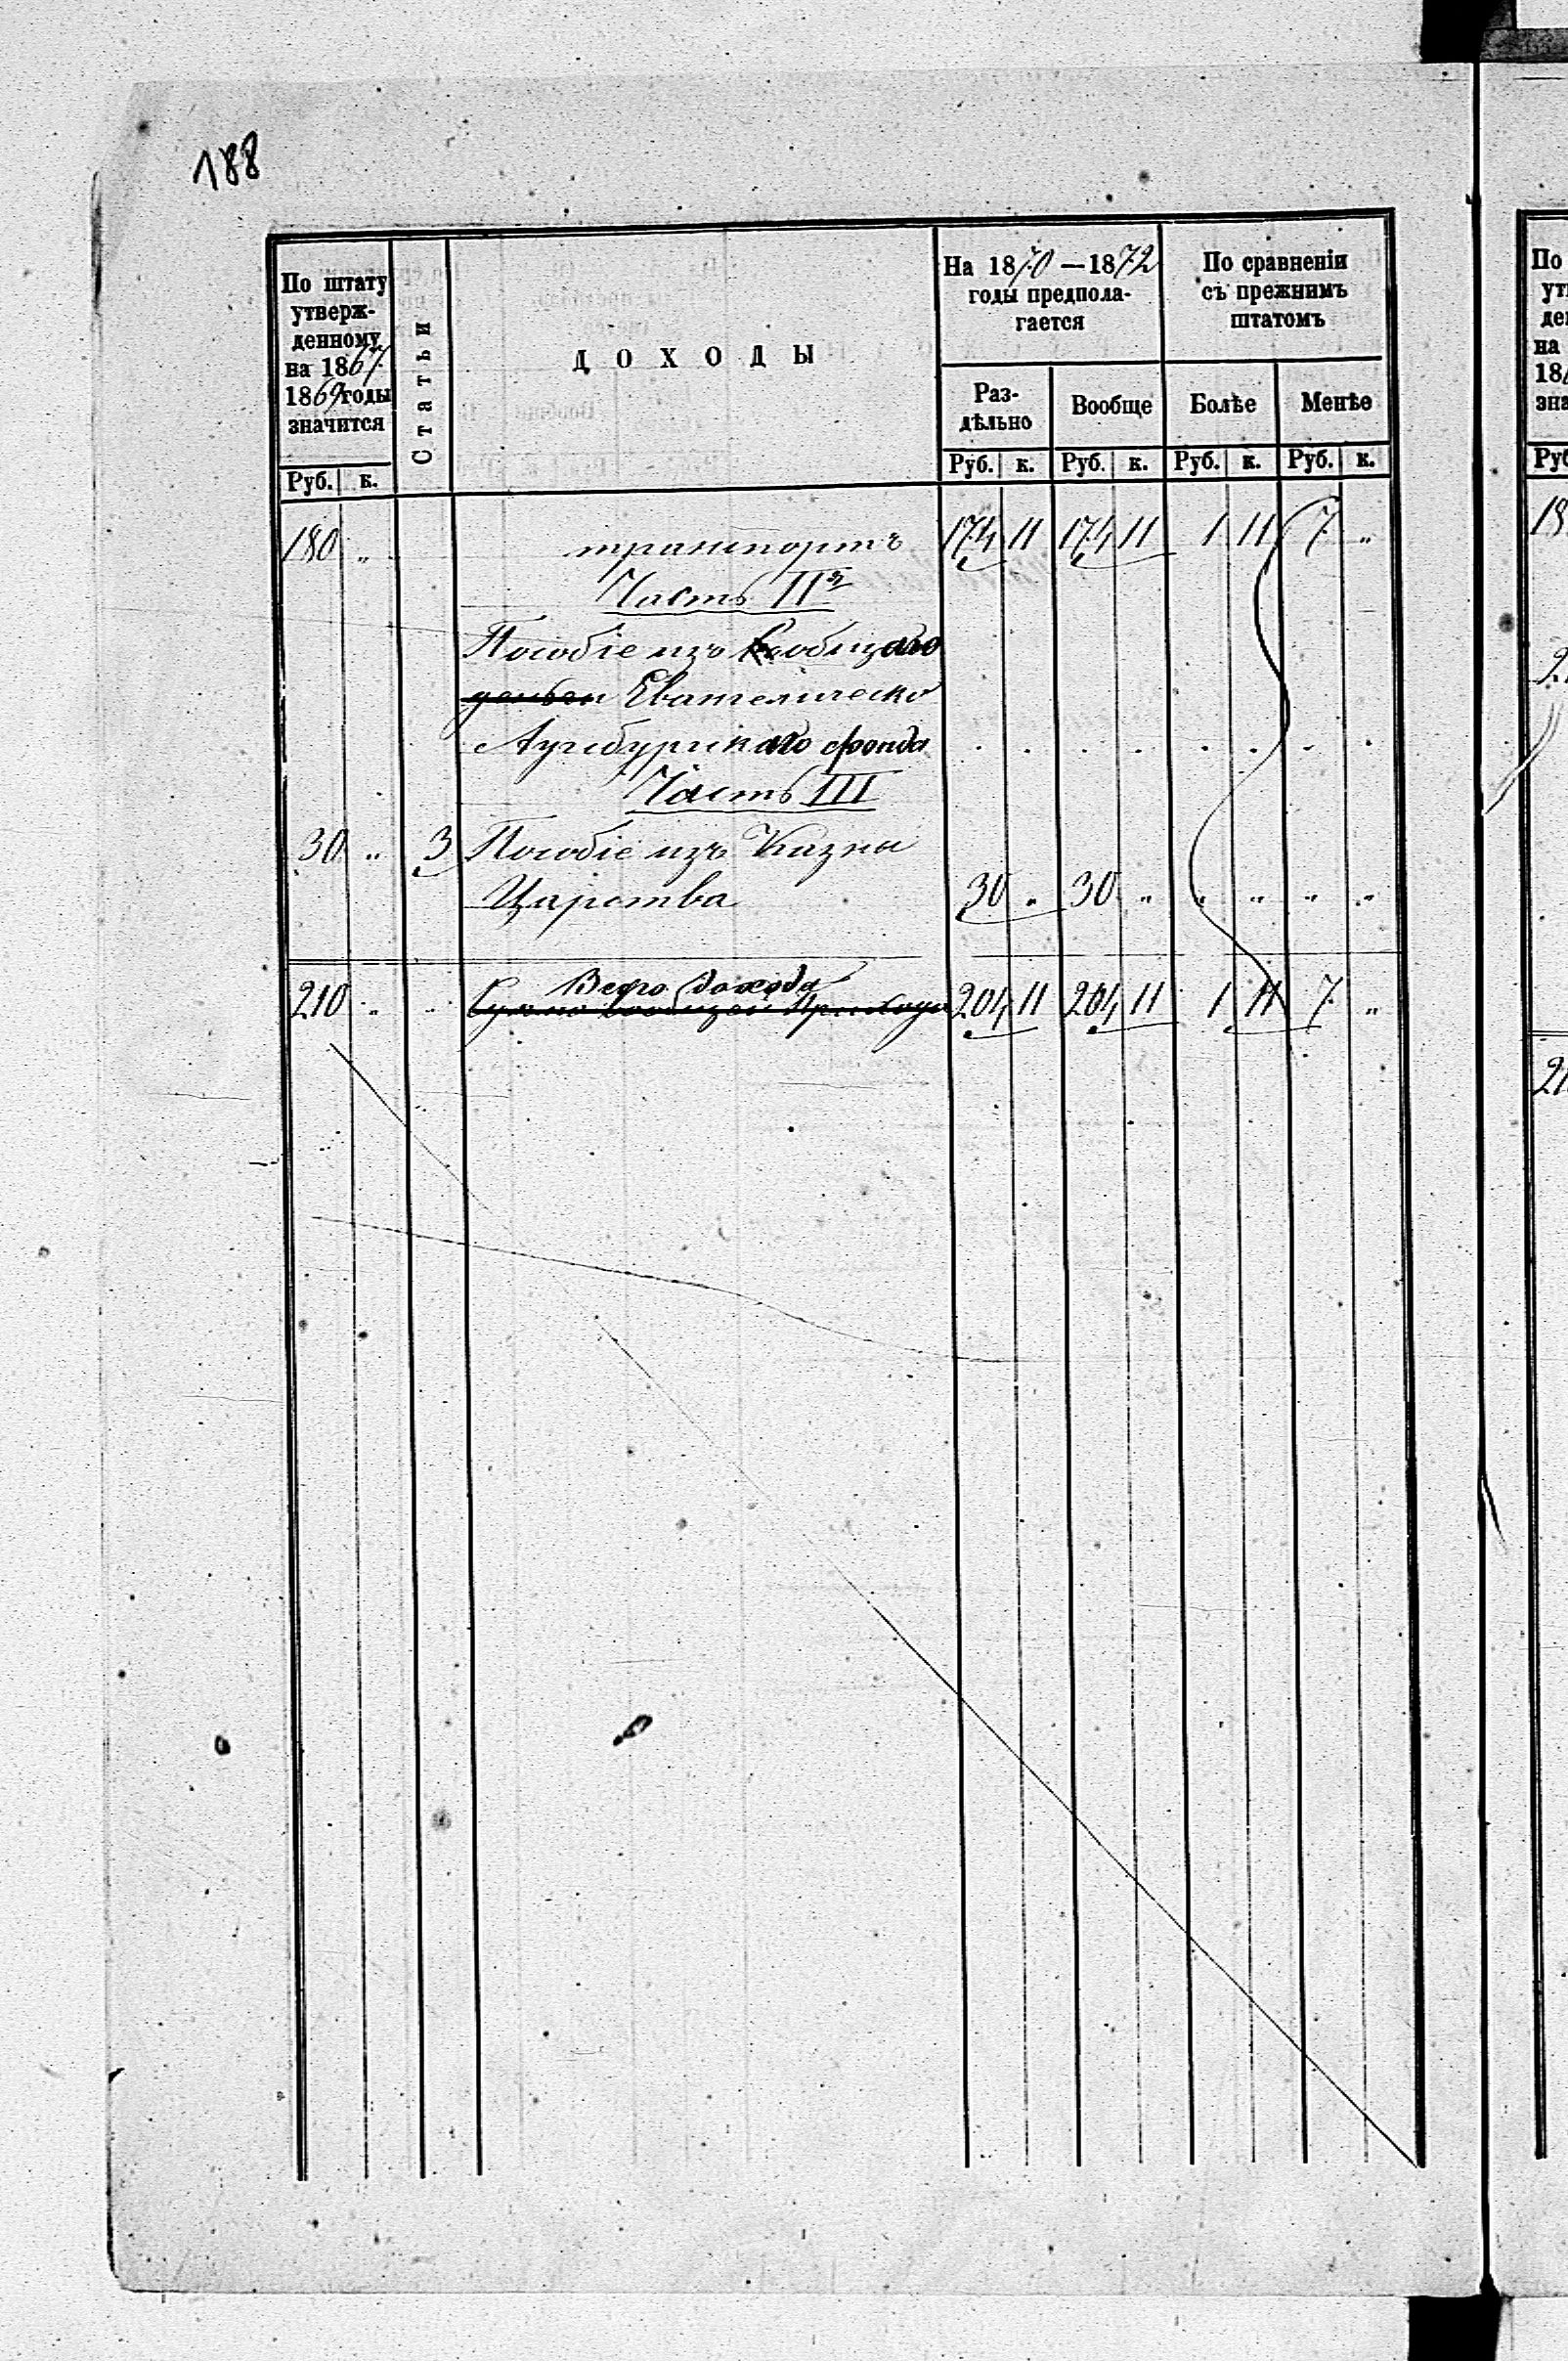 188
По штату утверж- денному на 1867/ 1869 годы значится
Статьи
ДОХОДЫ
На 1870 — 1872 годы предпола- гается
По сравненію съ прежнимъ штатомъ
Раз- дѣльно
Вообще
Болѣе
Менѣе
Руб. к. Руб. к. Руб. к. Руб. к. Руб. к.
180 „ транспортъ 174 11 174 11 1 11 7 „
Часть IIя
Пособіе изъ общаго
Евангелическо
Аугсбургскаго фонда . . . . . . . .
Часть III
30 „ 3 Пособіе изъ Казны
Царства 30 „ 30 „ „ „ „ „
Всего дохода
210 „ „ Сумма вообщей Прихода 204 11 204 11 1 11 7 „
По
ут
ден
на
18
зна
Руб
18
21